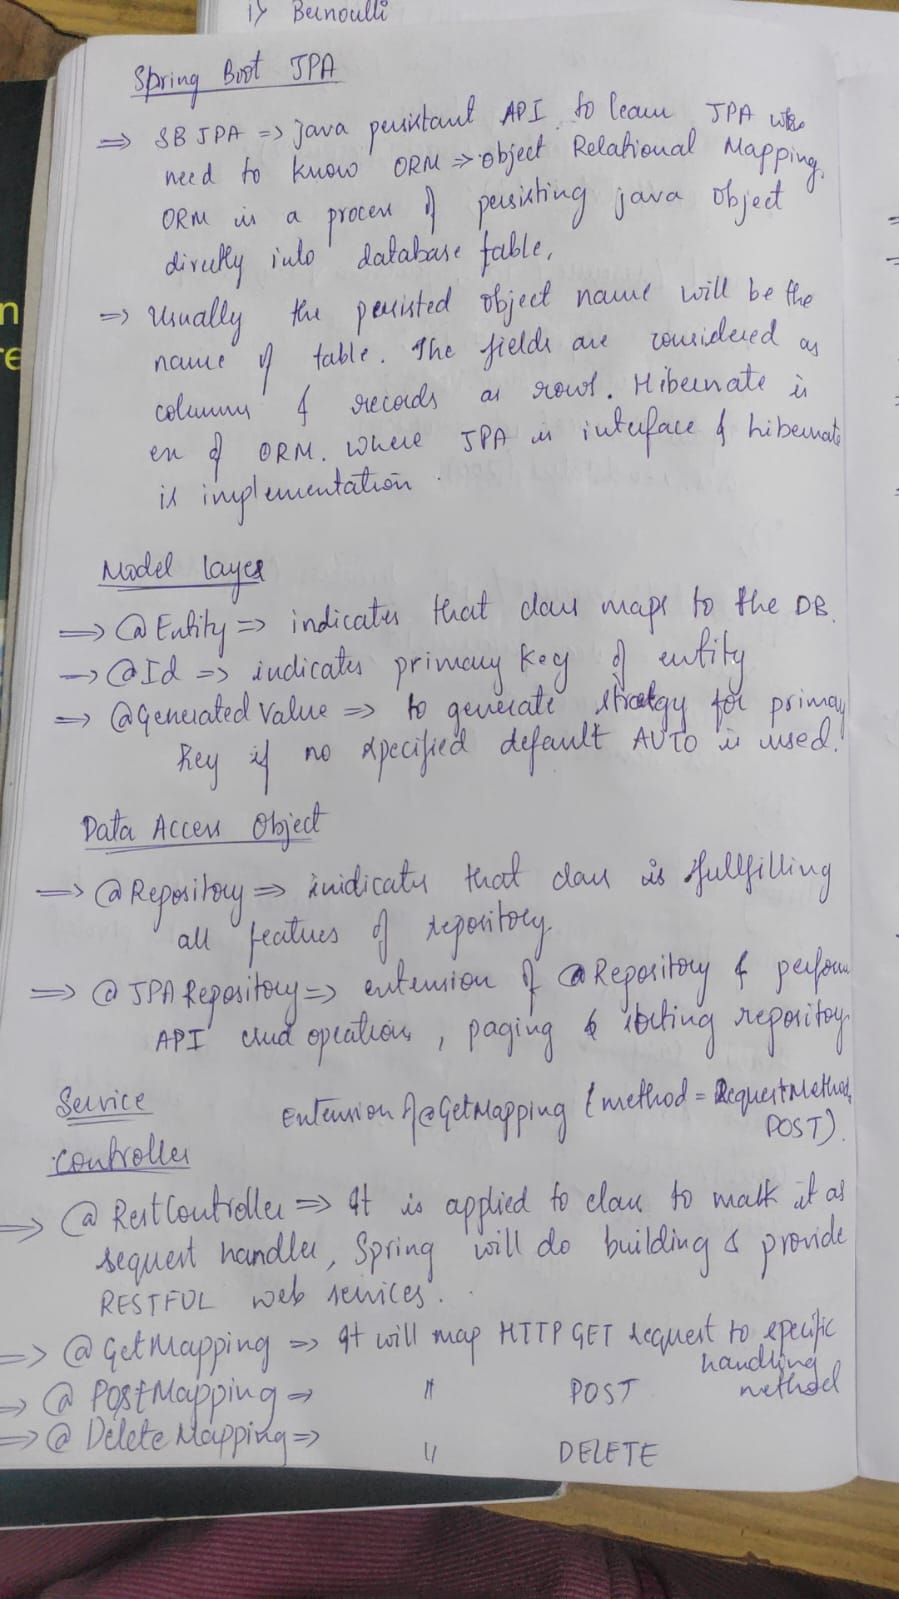 i) Bernoulli
Spring Boot JPA
⇒ SB JPA ⇒ java persistant API. to learn JPA we
need to know ORM ⇒ object Relational Mapping.
ORM is a process of persisting java object
directly into database table.
⇒ Usually the persisted object name will be the
name of table. The fields are considered as
columns & records as rows. Hibernate is
ex of ORM. where JPA is interface & hibernate
is implementation.
Model Layer
⇒ @Entity ⇒ indicates that class maps to the DB.
→ @Id ⇒ indicates primary key of entity
⇒ @Generated Value ⇒ to generate stratgy for primary
key if no specified default AUTO is used.
Data Access Object
⇒ @Repository ⇒ inidicates that class is fullfilling
all featues of repository.
⇒ @ JPA Repository ⇒ extension of @Repository & perform
API crud opration, paging & sorting repository
Service
Extension of @GetMapping (method = RequestMethod.
POST).
Controller
⇒ @ RestController ⇒ It is applied to class to mark it as
request handler, Spring will do building & provide
RESTFUL web services.
⇒ @ GetMapping ⇒ It will map HTTP GET request to specific
handling
⇒ @ PostMapping ⇒ " POST method
⇒ @ Delete Mapping ⇒ " DELETE